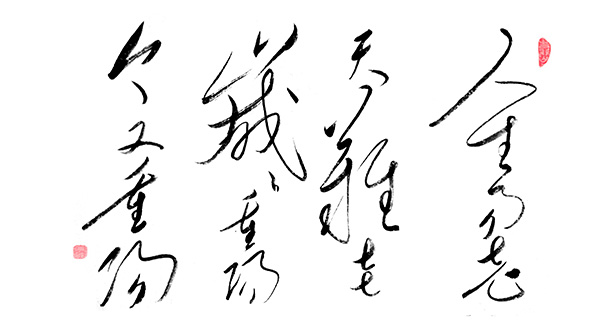 人生易老
天難老
歲々重陽
今又重陽